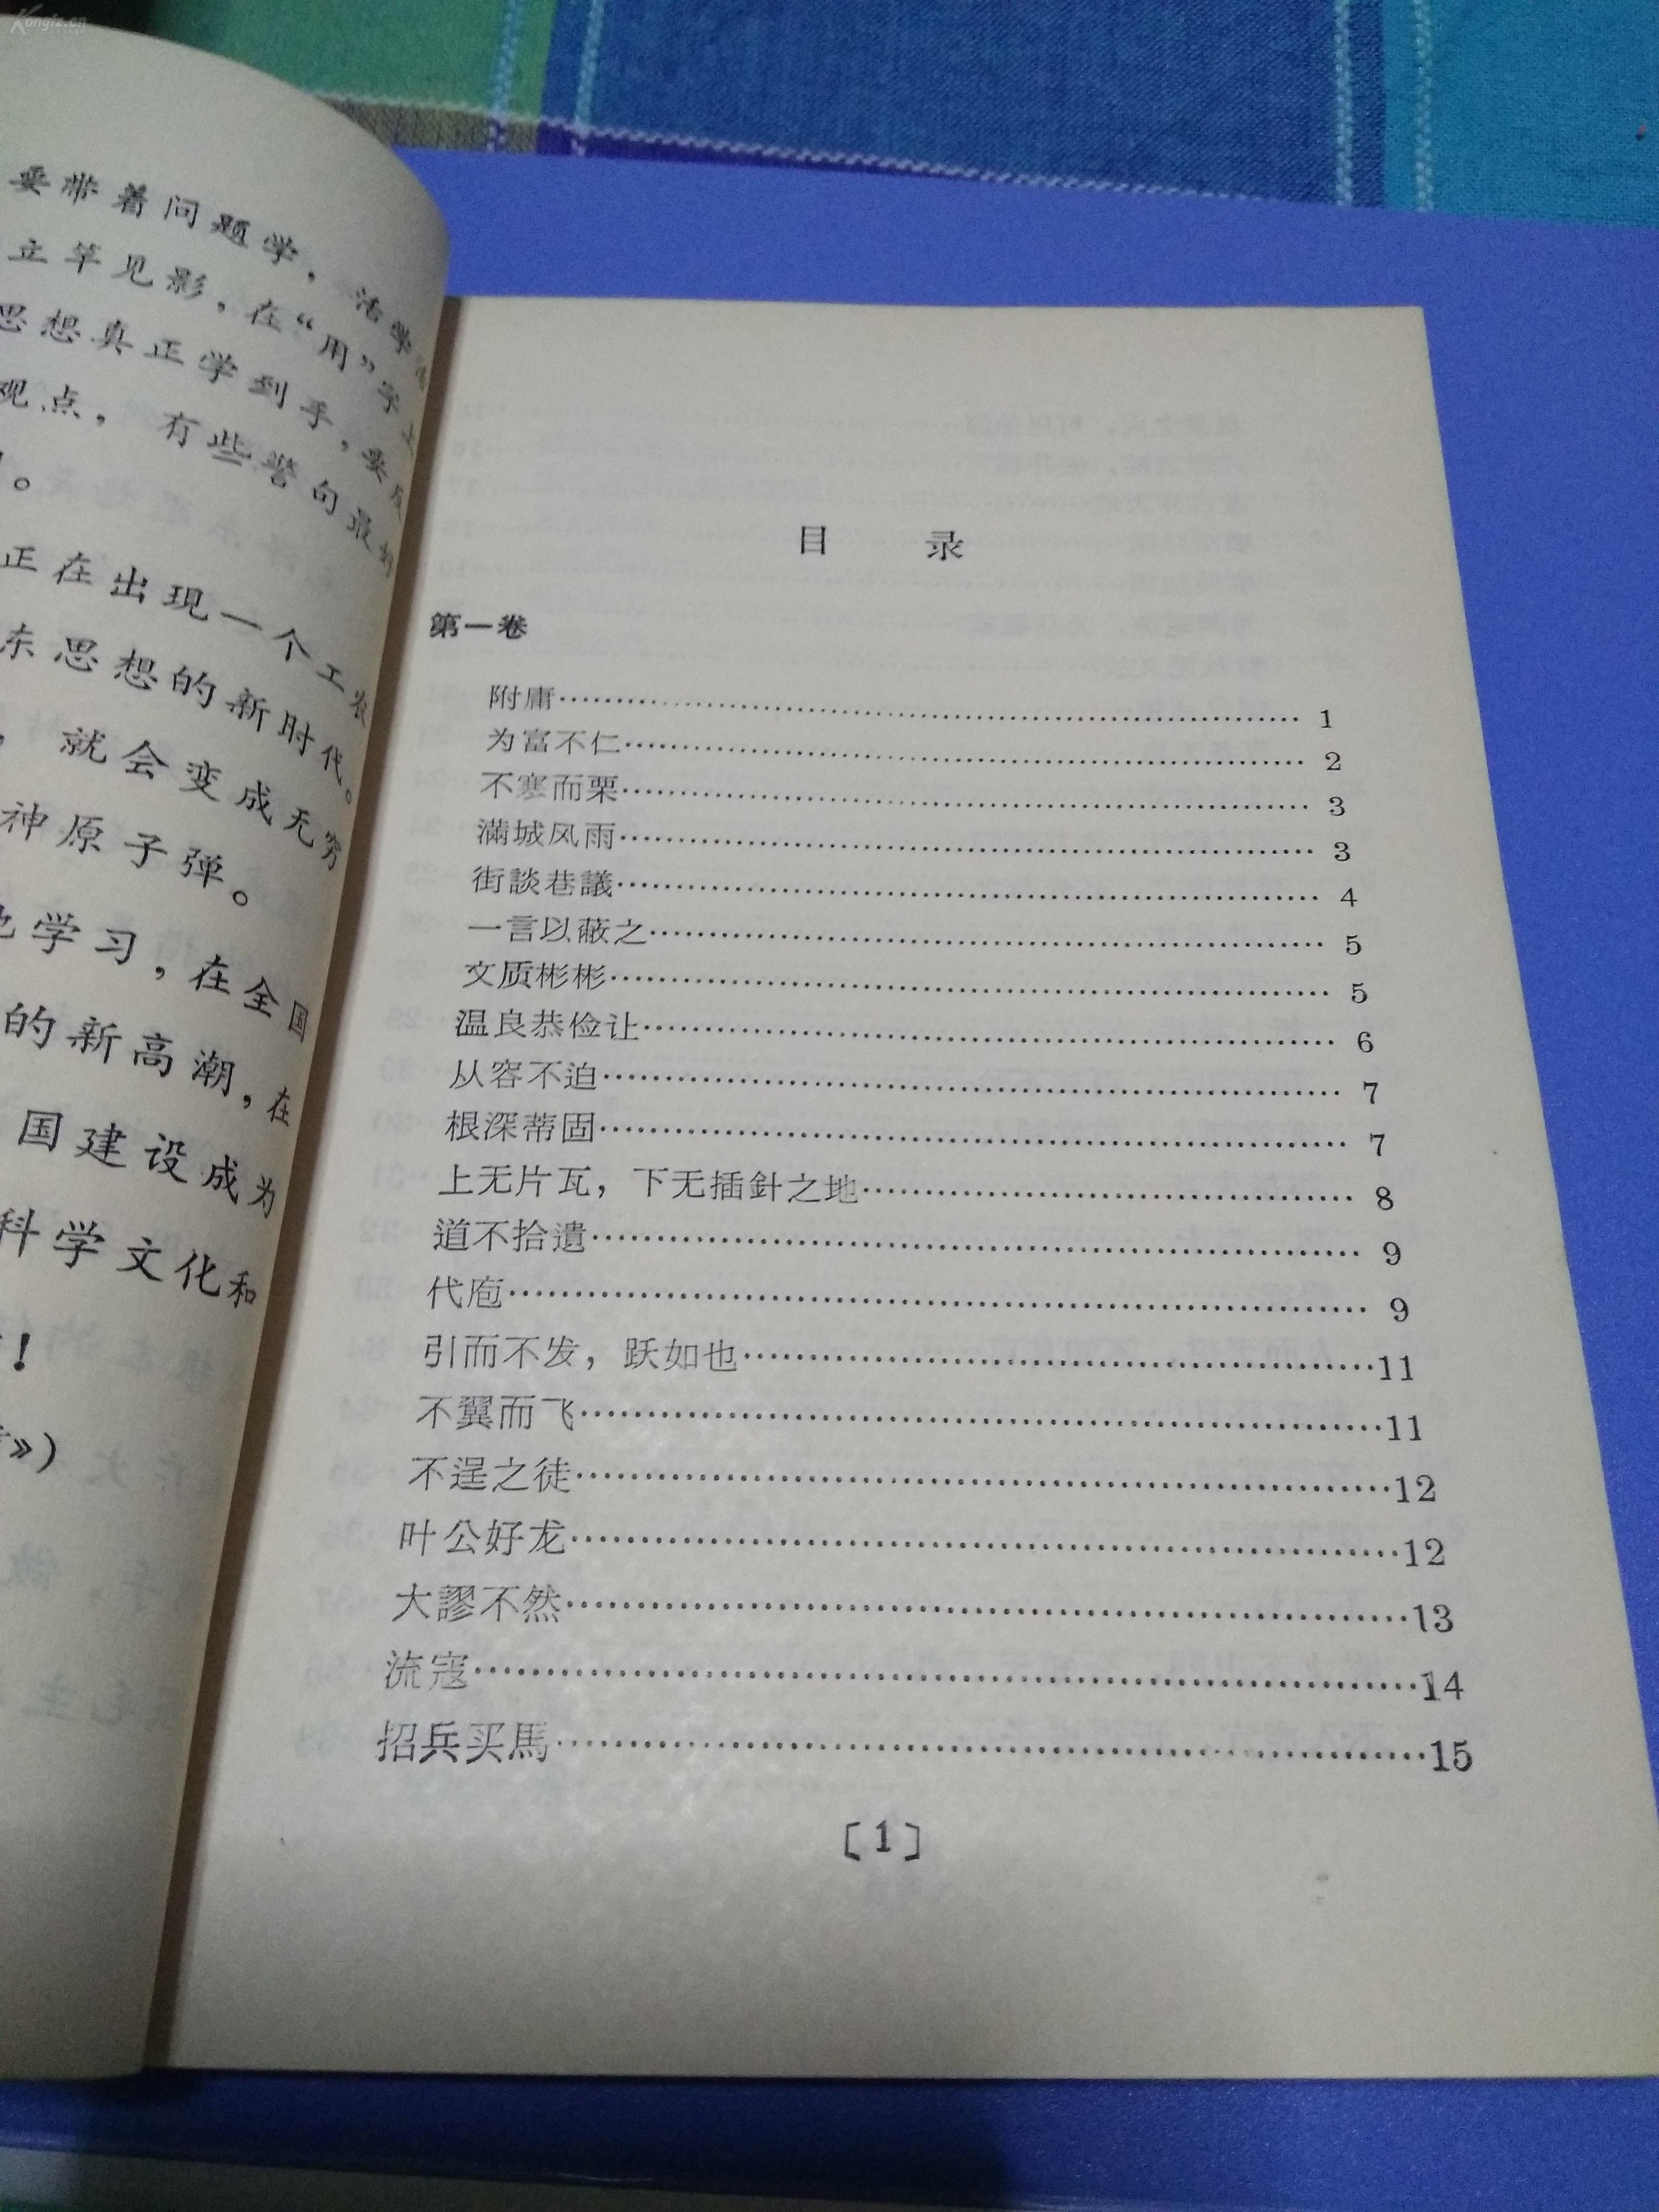 Kongfz.cn
要带着问题学，活学
立竿见影，在“用”字上
思想真正学到手，要
观点，有些警句最好
。
正在出现一个工农
东思想的新时代。
，就会变成无穷
神原子弹。
学习，在全国
的新高潮，在
国建设成为
科学文化和
！
》）
目 录
第一卷
附庸…………1
为富不仁…………2
不寒而栗…………3
滿城风雨…………3
街談巷議…………4
一言以蔽之…………5
文质彬彬…………5
温良恭俭让…………6
从容不迫…………7
根深蒂固…………7
上无片瓦，下无插針之地…………8
道不拾遺…………9
代庖…………9
引而不发，跃如也…………11
不翼而飞…………11
不逞之徒…………12
叶公好龙…………12
大謬不然…………13
流寇…………14
招兵买馬…………15
〔1〕